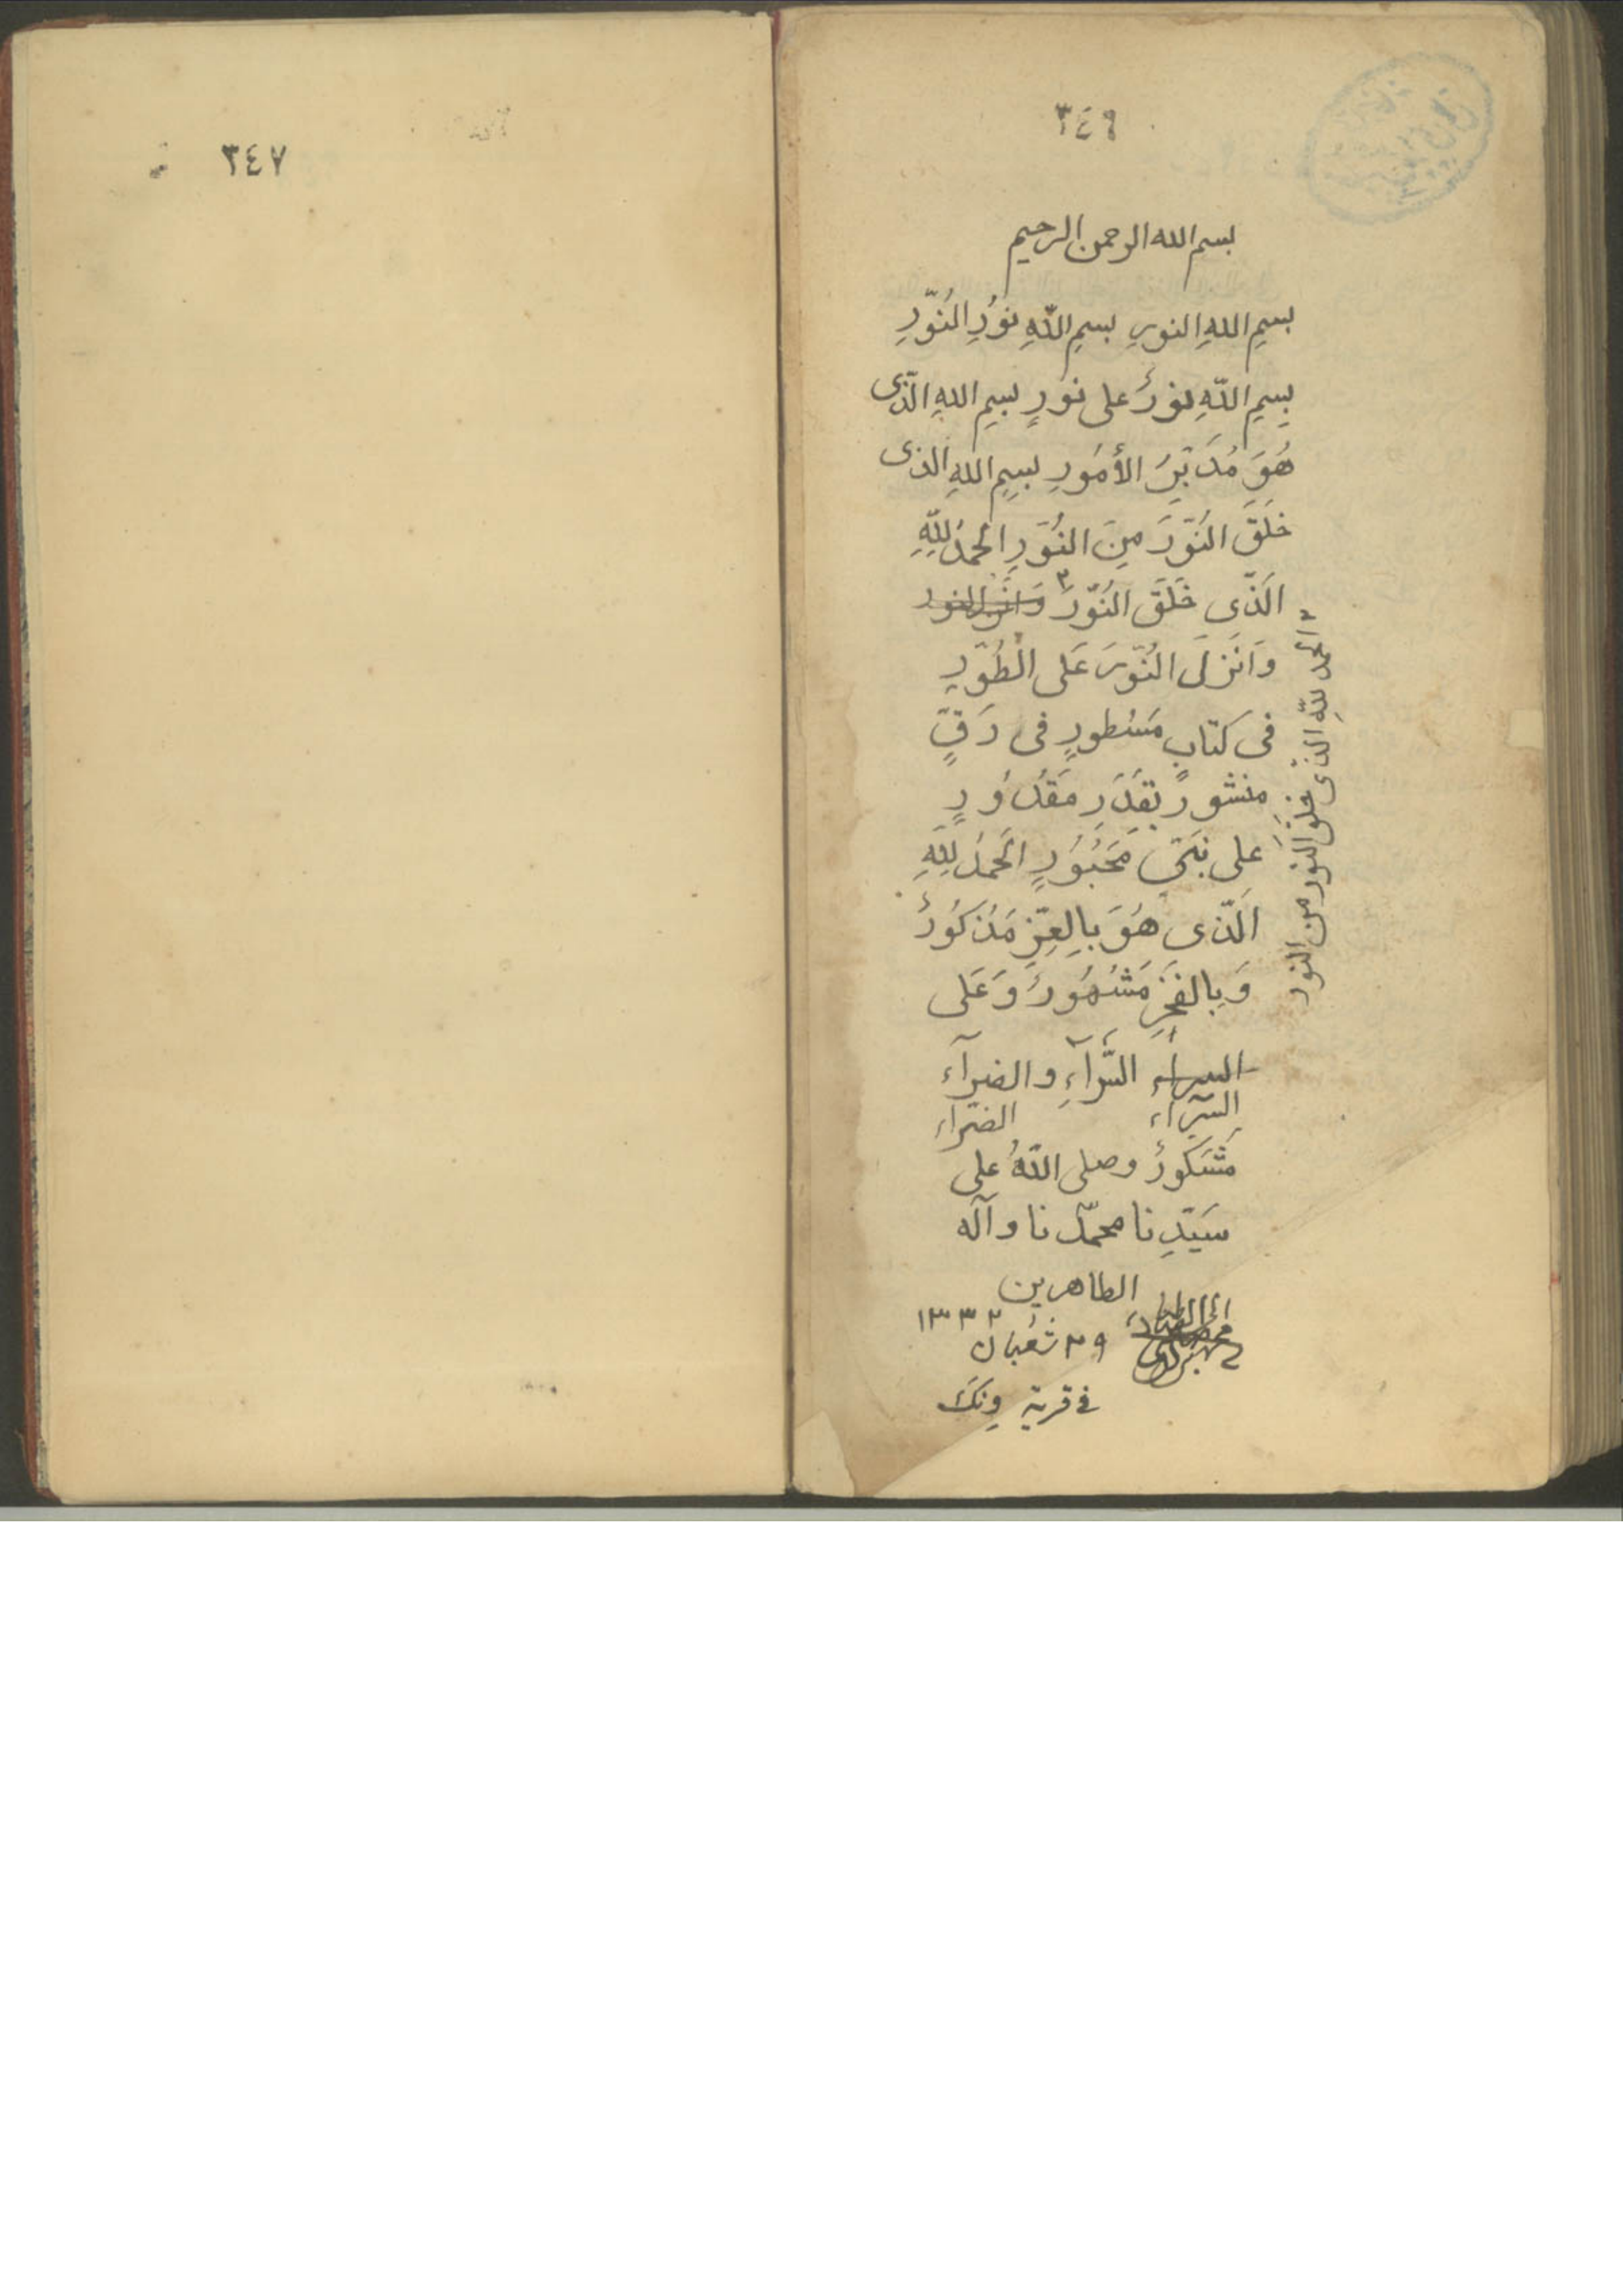 ٣٤٦
بسم الله الرحمن الرحيم
بِسمِ اللهِ النورِ بسمِ اللّهِ نوُرِ النُوّرِ
بِسمِ اللّهِ نورُ على نوُرٍ بسمِ اللهِ الَّذى
هُوَ مُدَبِّرُ الأمُورِ بسمِ اللهِ الذى
خَلَقَ النُوّرَ مِنَ النُوَرِ الحمدُ لِلّهِ
الَّذى خَلَقَ النُوّرَ ٢ وَانزل النور
وَاَنزَلَ النُوّرَ عَلى الطُوّرِ
فى كتابٍ مَسْطورٍ فى رَقٍّ
مِنشورٍ بِقَدَرِ مَقْدُورٍ
عَلى نَبىّ مَحَبُوُرٍ الَحمدُ لِلّهِ
الَّذى هُوَ بِالِعِزِّ مَذكوُرُ
وَبِالفَخِرِ مَشْهُورُ وَعَلى
السراء السَّرآءِ والضرآء
السرّاء الضرّاء
مَشَكورُ وصلى اللّهُ على
سَيّدِنا محمّدنا وآله
الطاهرين
١٣٣٢
٢٩ شعبان
فى قرية ونك
٢ الحمدُ للّهِ الذى خلقَ النور من النور
٣٤٧